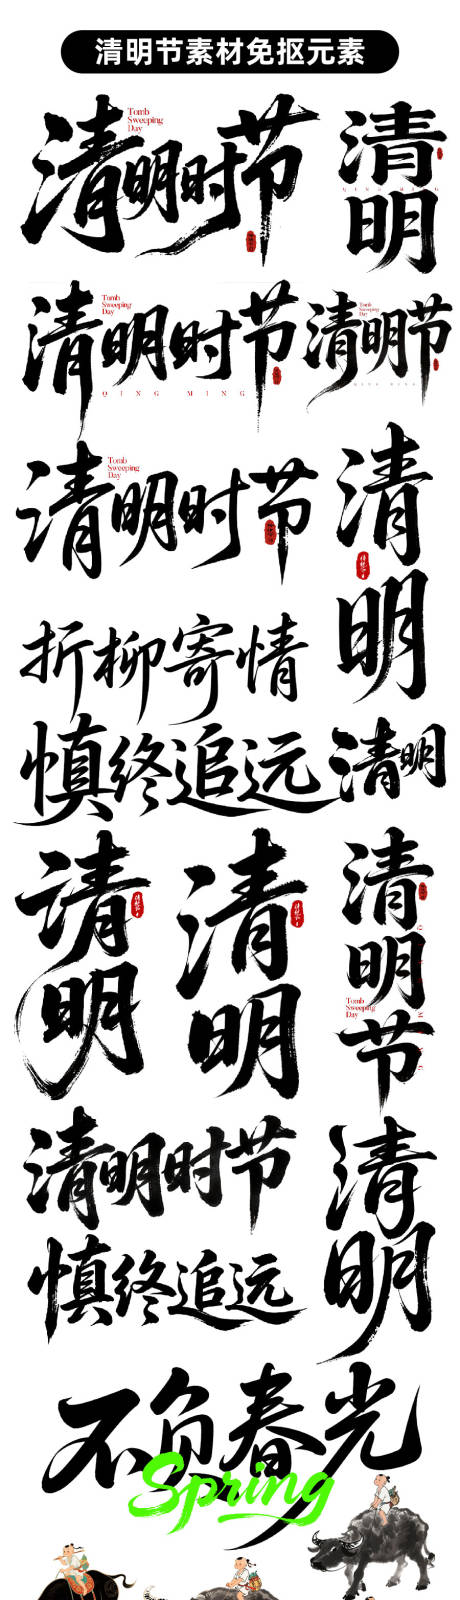 清明节素材免抠元素
清明时节
Tomb
Sweeping
Day
清明
QING MING
清明时节
Tomb
Sweeping
Day
QING MING
清明节
Tomb
Sweeping
Day
QING MING
清明时节
Tomb
Sweeping
Day
清明
折柳寄情
慎终追远
清明
清明
清明
清明节
Tomb
Sweeping
Day
QING MING
清明时节
清明
慎终追远
不负春光
Spring